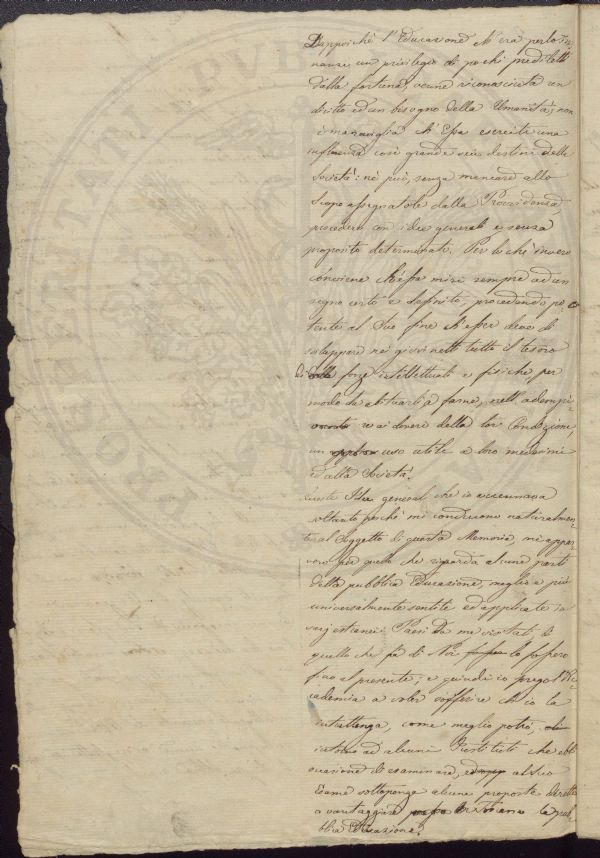 Dappoiché l'Educazione ch'era per lo in-
nanzi un privilegio di pochi prediletti
dalla fortuna, venne riconosciuta un
dritto ed un bisogno della Umanità, non
è maraviglia ch'Essa eserciti una
influenza così grande sui destini della
Società: né può, senza mancare allo
Scopo assegnatole dalla Provvidenza,
procedere con idee generali e senza
proposito determinato. Per lo che invero
conviene ch'essa miri sempre ad un
segno certo e definito, procedendo po
tente al Suo fine ch'esser deve di
sviluppare nei giovinetti tutto il tesoro
di forze intellettuali e fisiche, per
modo da abituarli a farne, nell'adempi-
ai doveri della lor Condizione,
un uso utile a loro medesimi
ed alla Società.
Queste Idee generali che io accennava
soltanto perché mi conducono naturalmen-
te al Soggetto di questa Memoria, mi appar-
vero per quello che riguarda alcune parti
della pubblica Educazione, meglio e più
universalmente sentite ed applicate in
Paesi da me visitati, di
quello che fra di Noi lo fossero
fino al presente; e quindi io prego l'Ac-
cademia a voler soffrire ch'io la
intrattenga, come meglio potrò,
intorno ad alcuni Instituti che ebbi
occasione di esaminare, ed al suo
Esame sottoponga alcune proposte dirette
a vantaggiare la pub-
blica Educazione.